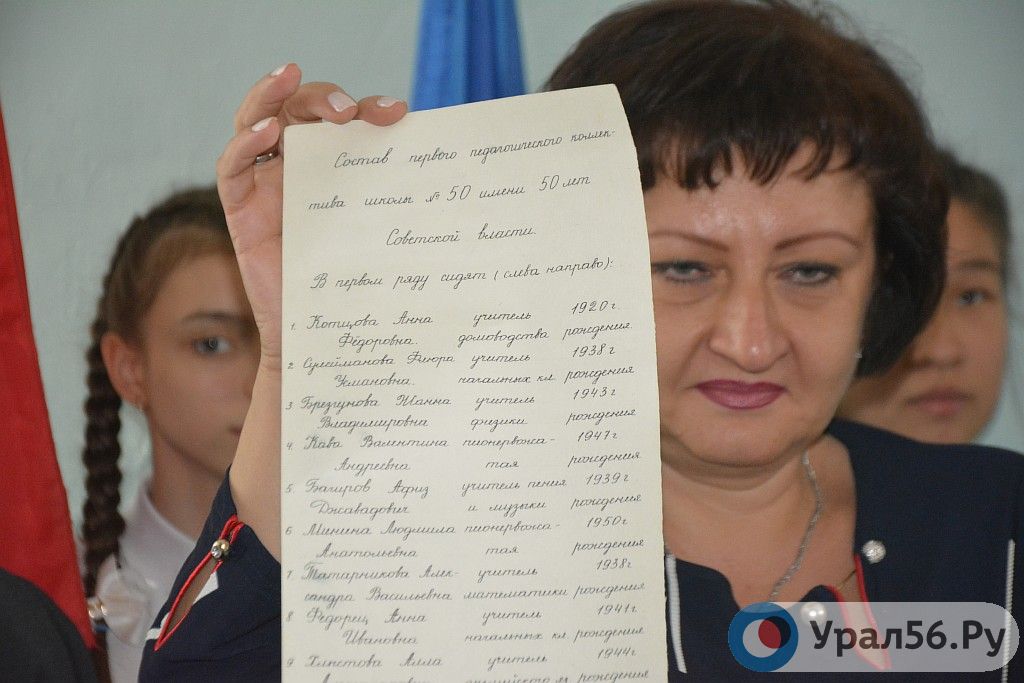 Состав первого педагогического коллек-
тива школы № 50 имени 50 лет
Советской власти.
В первом ряду сидят (слева направо):
1. Котцова Анна учитель 1920 г.
Фёдоровна. домоводства рождения
2 Сулейманова Флюра учитель 1938 г
Усмановна. начальных кл. рождения
3. Брезгунова Жанна учитель 1943 г
Владимировна физики рождения
4. Кава Валентина пионервожа- 1947 г
Андреевна тая рождения
5. Багиров Афиз учитель пения 1939 г
Джавадович и музыки рождения
6 Минина Людмила пионервожа- 1950 г
Анатольевна тая рождения
7 Татарникова Алек- учитель 1938 г
сандра Васильевна математики рождения
8 Федорец Анна учитель 1941 г
Ивановна начальных кл. рождения
9 Хлыстова Алла учитель 1944 г
рождения
Урал56.Ру